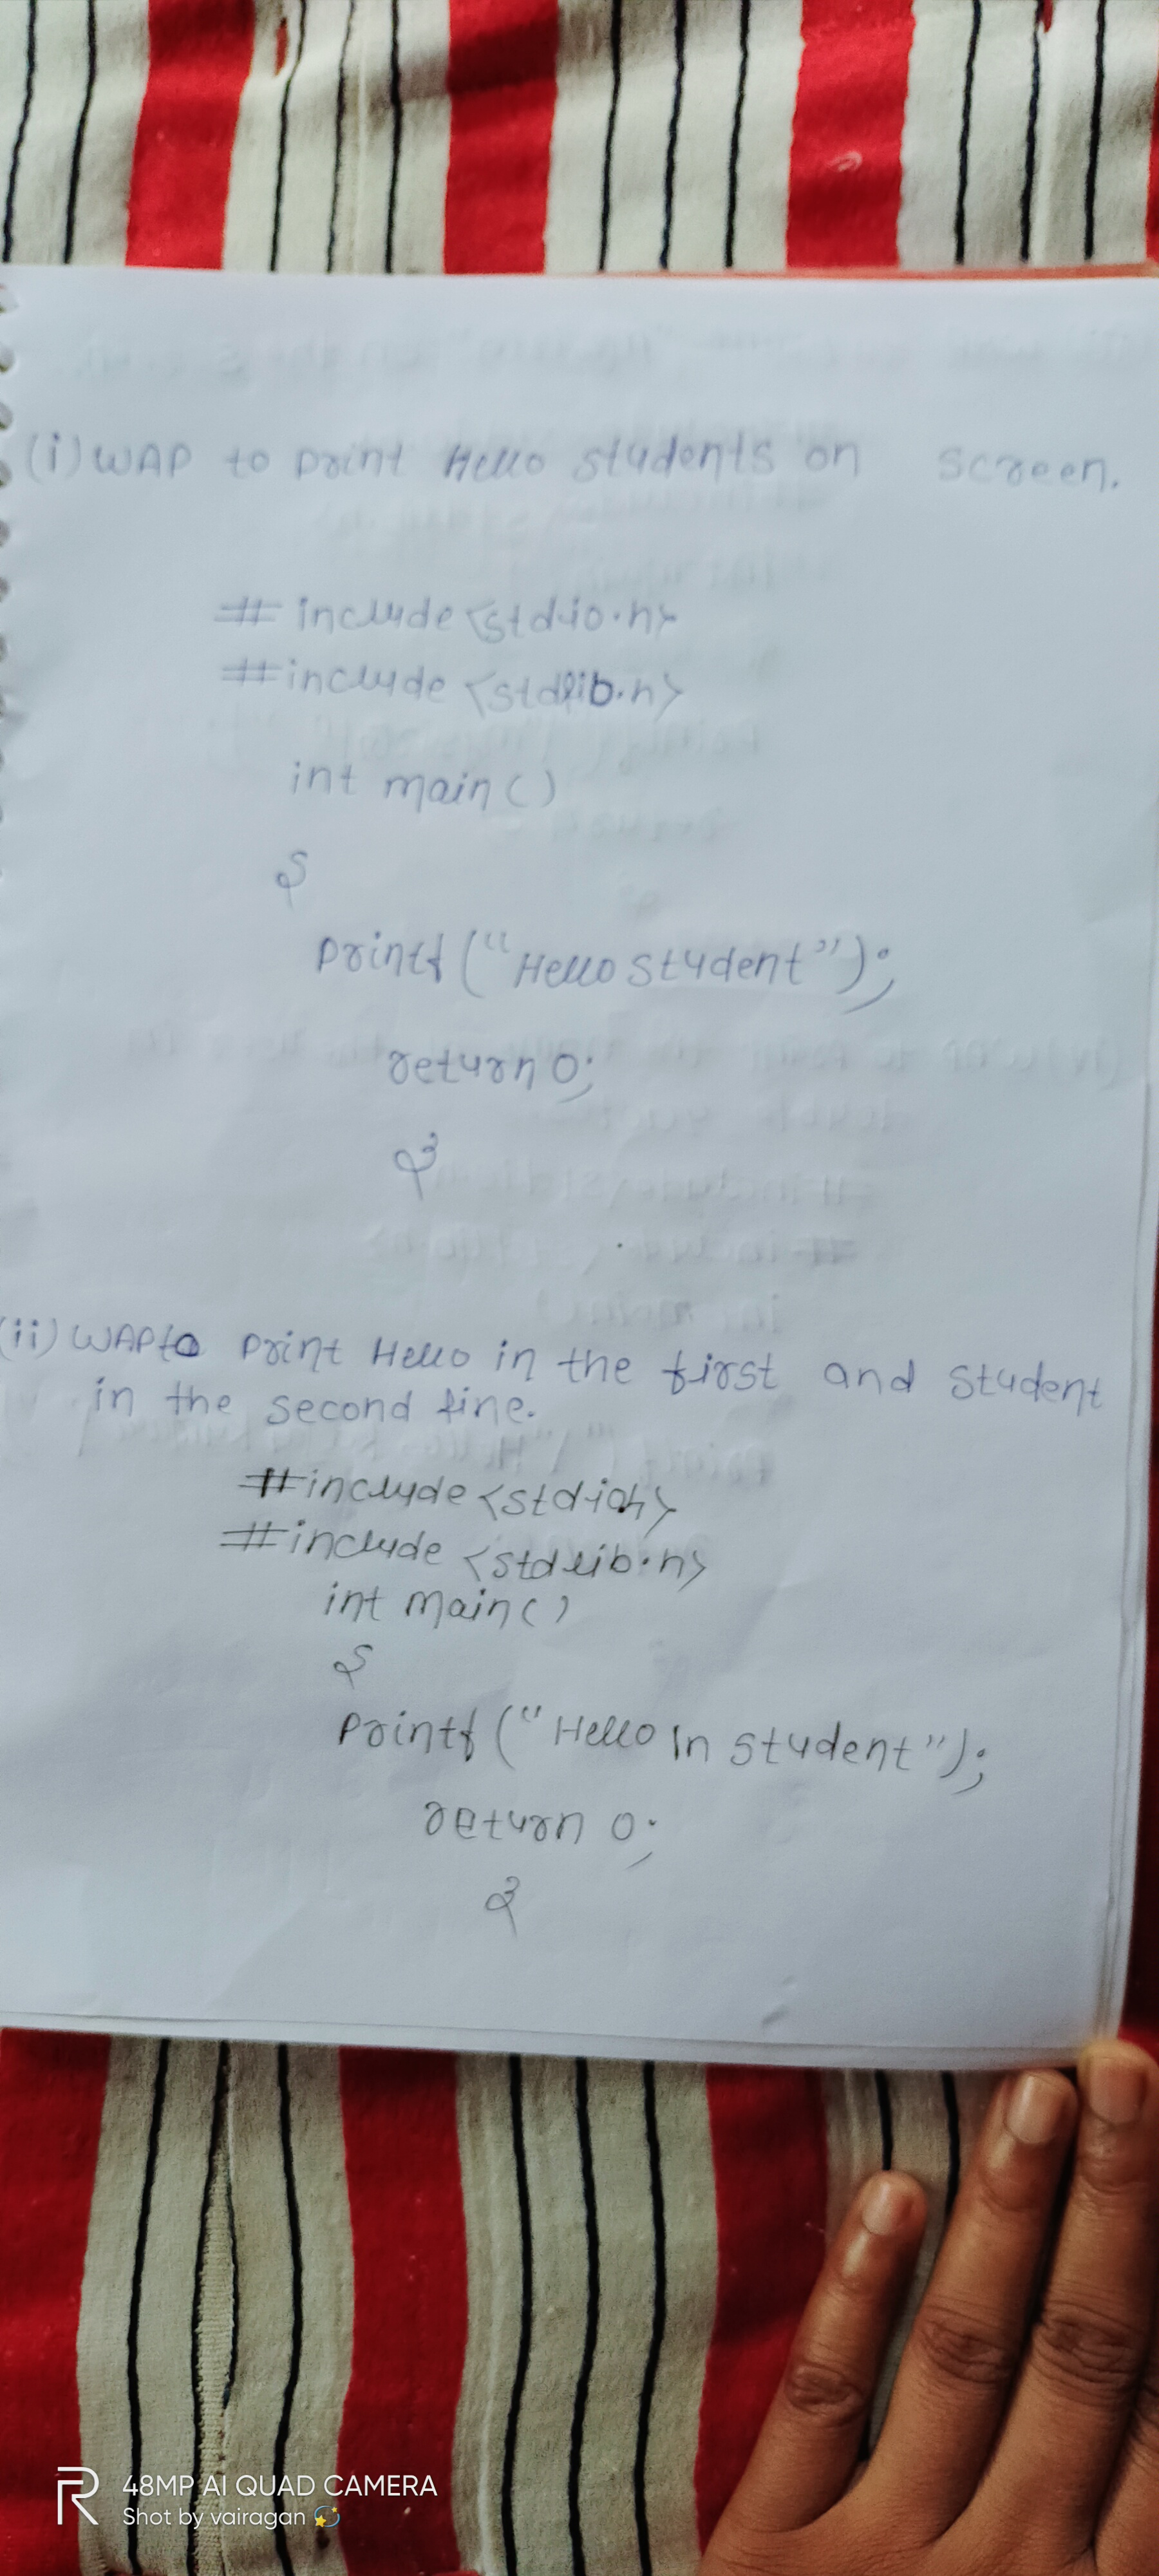 (i) WAP to print Hello students on screen.
#include<stdio.h>
#include<stdlib.h>
int main()
{
printf("Hello student");
return 0;
}
(ii) WAP to print Hello in the first and student
in the second line.
#include<stdioh>
#include<stdlib.h>
int main()
{
printf("Hello \n student");
return 0;
}
48MP AI QUAD CAMERA
Shot by vairagan 💫